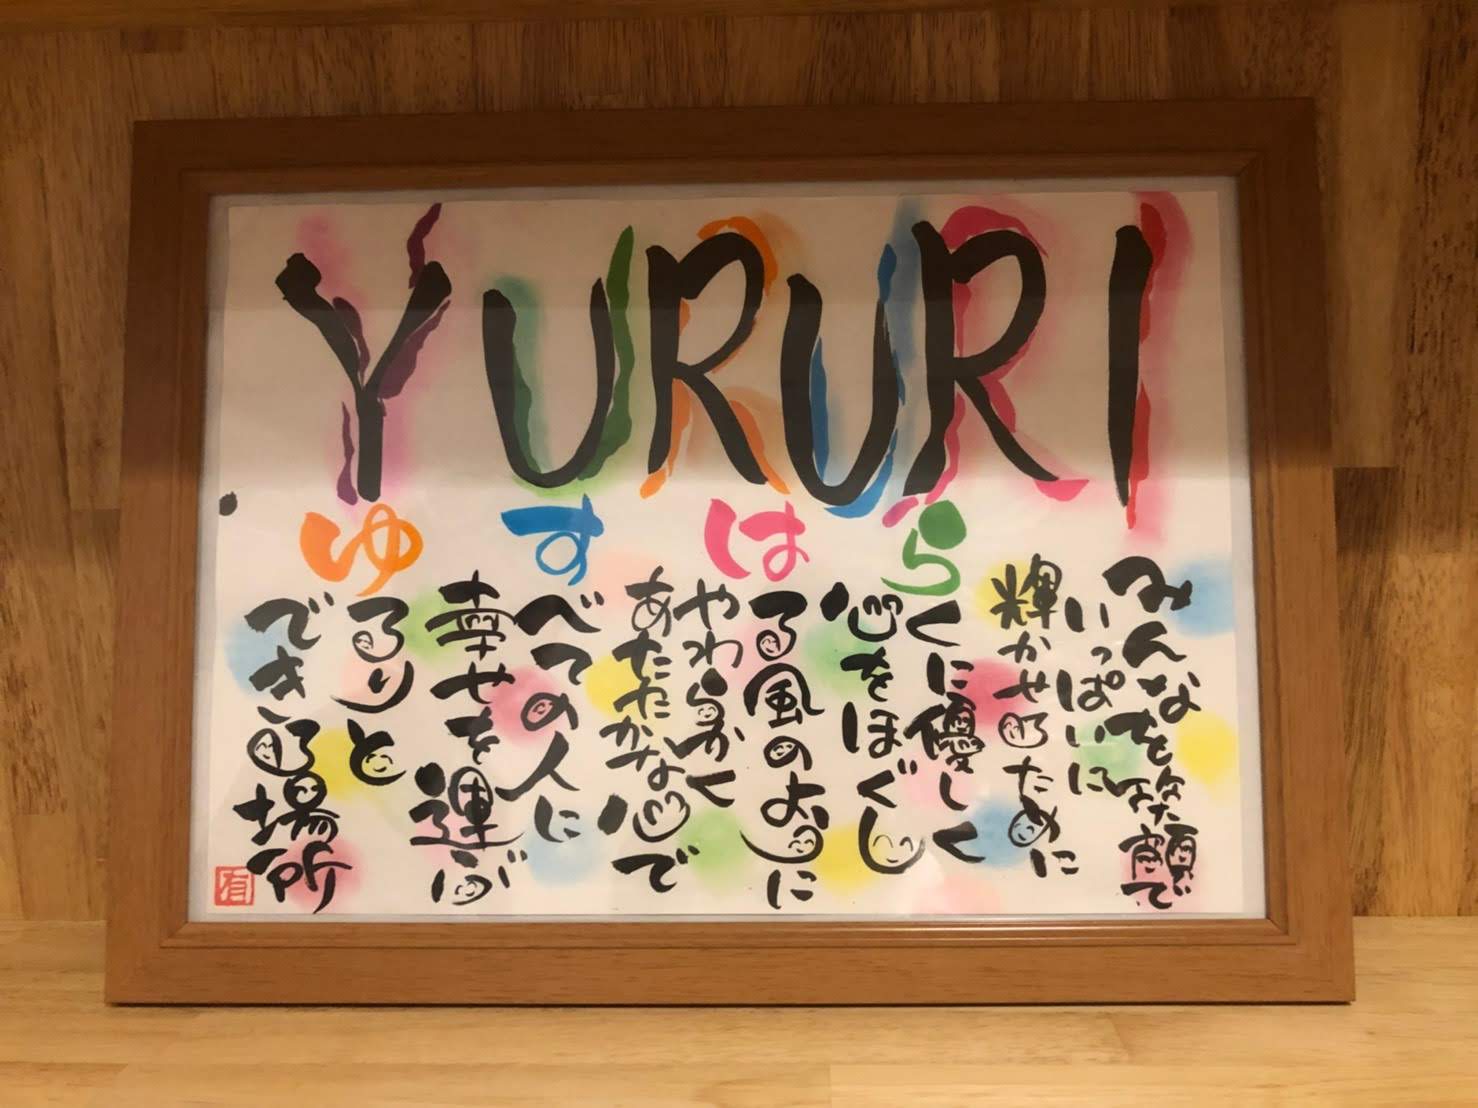 YURURI
ゆすはら
みんなを笑顔で
いっぱいに
輝かせるために
くに優しく
心をほぐし
る風のように
やわらかく
あたたかな心で
べての人に
幸せを運ぶ
るりと
できる場所
有